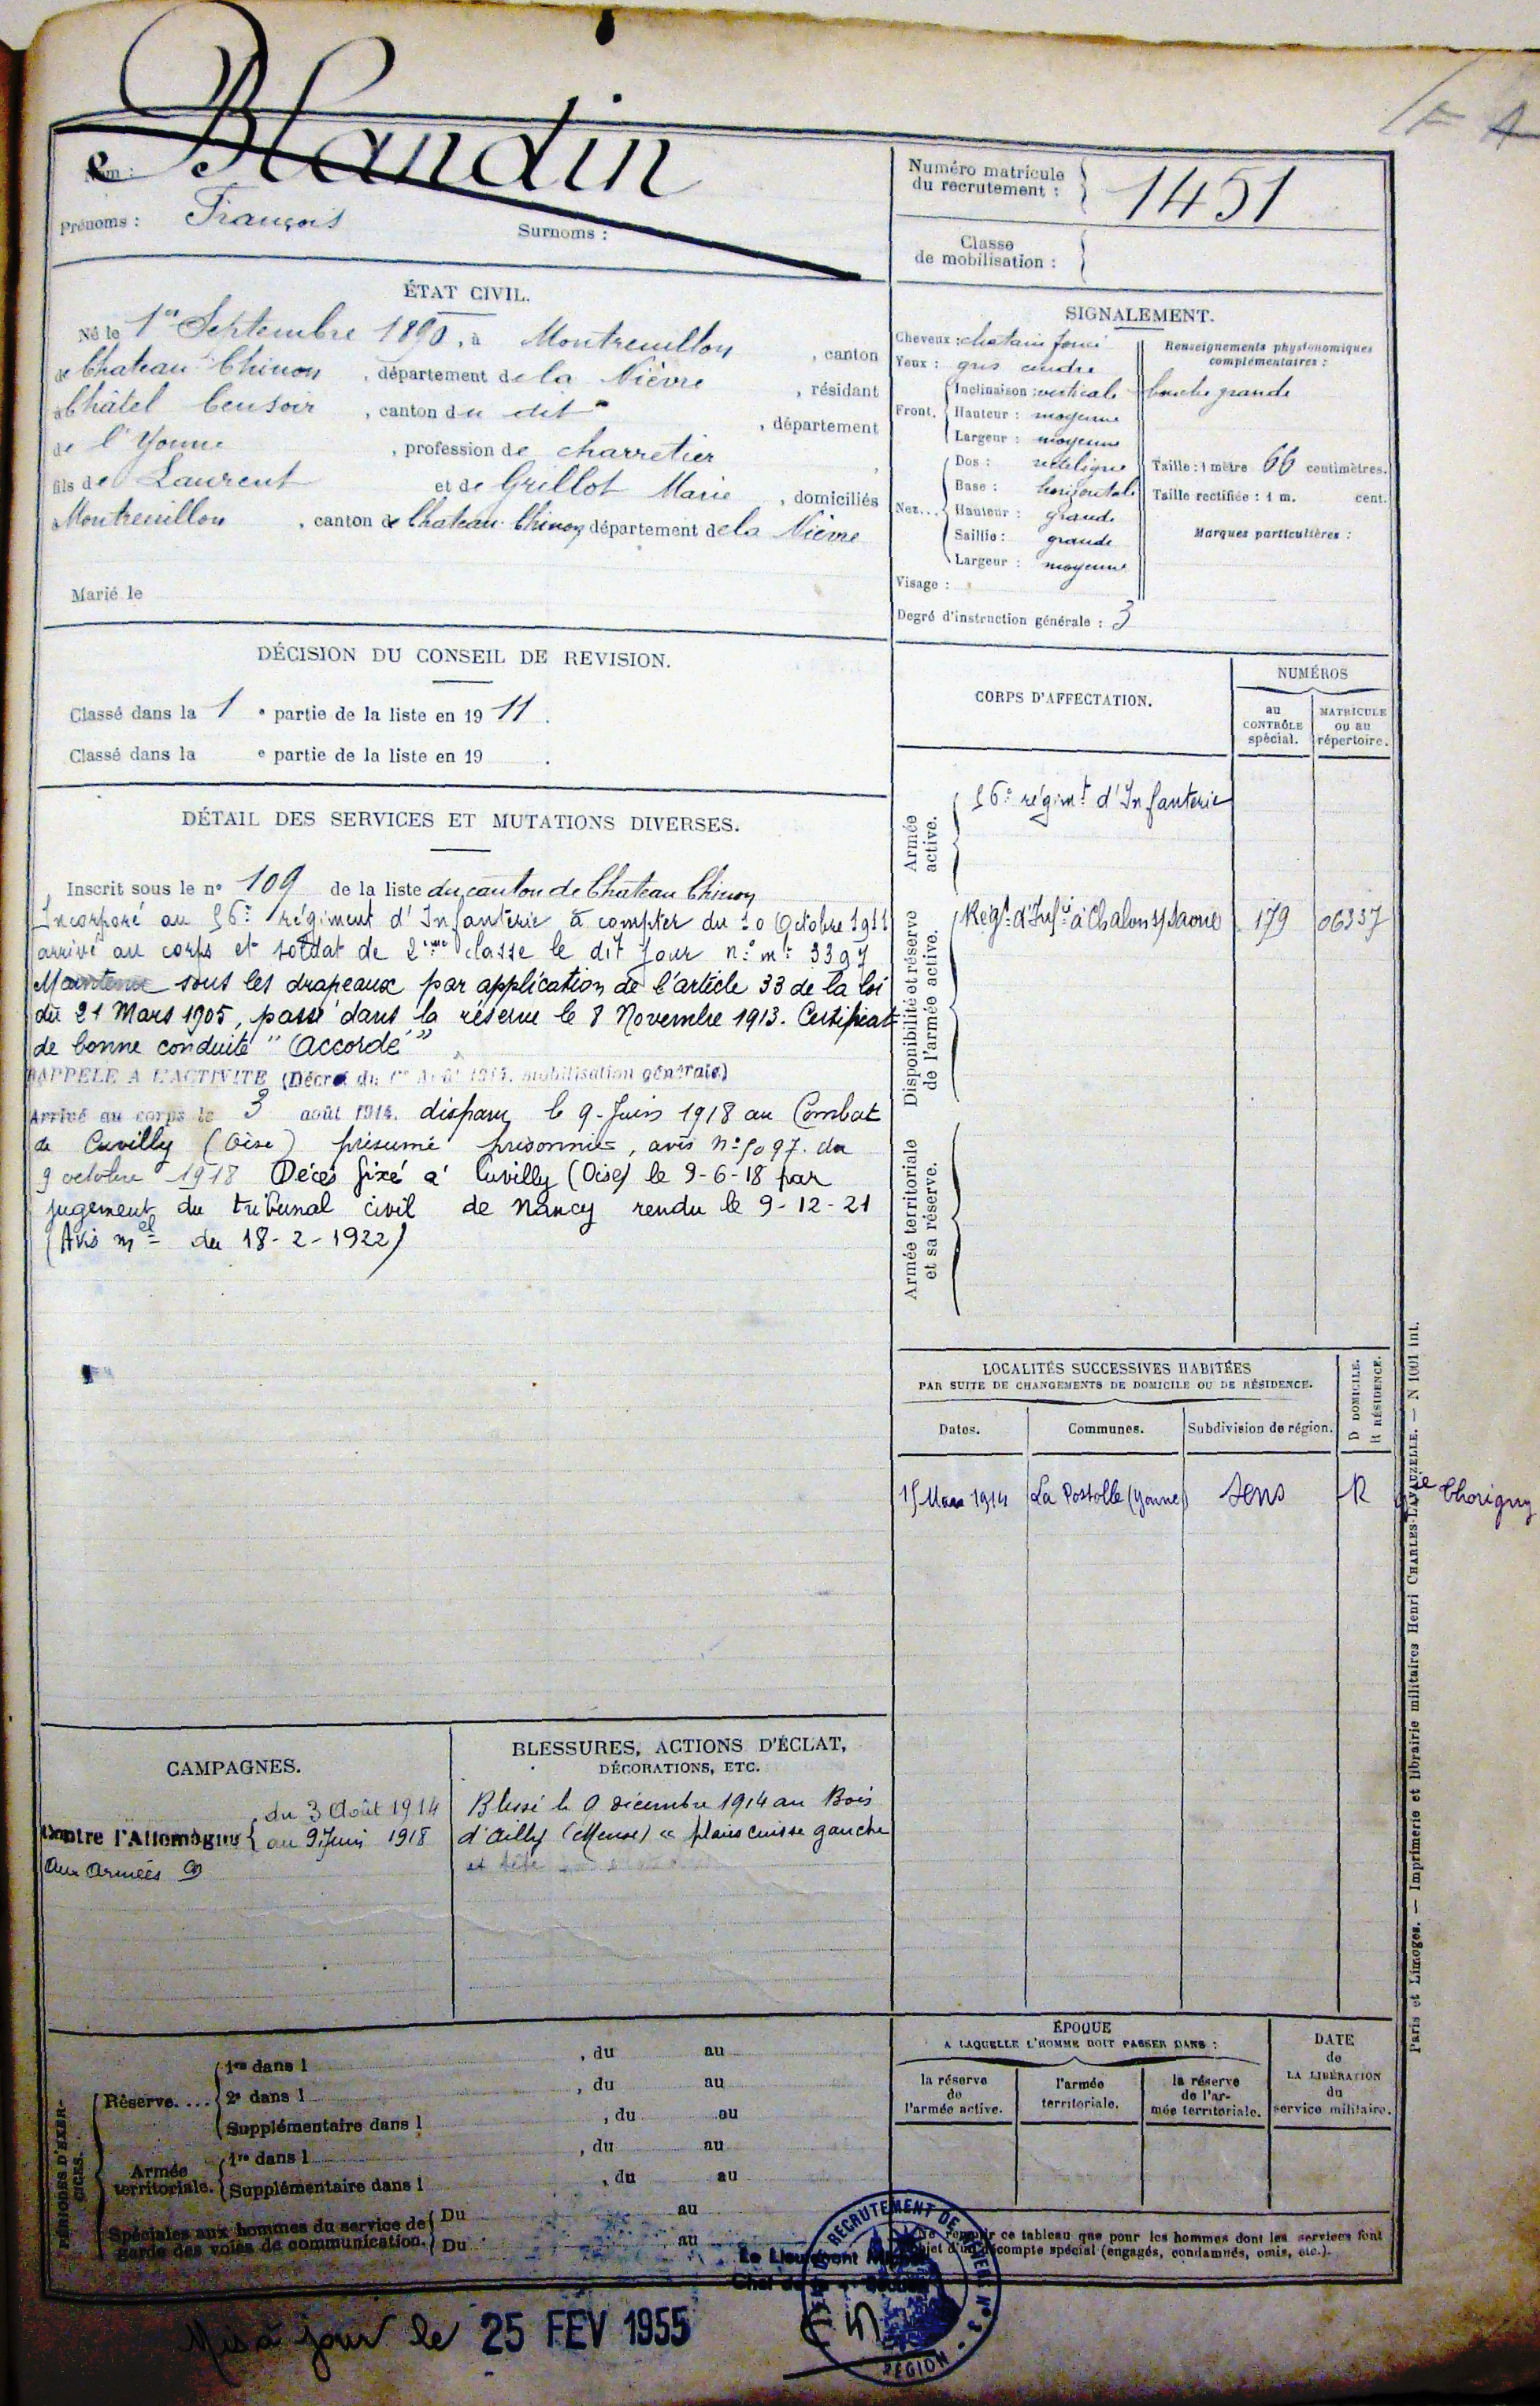 Blandin
Nom :
Prénoms : François
Surnoms :
Numéro matricule
du recrutement : 1451
Classe
de mobilisation :
ÉTAT CIVIL.
Né le 1er Septembre 1890, à Montreuillon, canton
de Chateau Chinon, département de la Nièvre, résidant
à Châtel Censoir, canton du dit, département
de l'Yonne, profession de charretier,
fils de Laurent et de Grillot Marie, domiciliés
à Montreuillon, canton de Chateau-Chinon, département de la Nièvre
Marié le
SIGNALEMENT.
Cheveux : chatain foncé
Yeux : gris cendré
Front. Inclinaison : verticale
Hauteur : moyenne
Largeur : moyenne
Nez... Dos : rectiligne
Base : horizontale
Hauteur : grande
Saillie : grande
Largeur : moyenne
Visage :
Degré d'instruction générale : 3
Renseignements physionomiques
complémentaires :
bouche grande
Taille : 1 mètre 66 centimètres.
Taille rectifiée : 1 m. cent.
Marques particulières :
DÉCISION DU CONSEIL DE REVISION.
Classé dans la 1e partie de la liste en 1911.
Classé dans la e partie de la liste en 19 .
DÉTAIL DES SERVICES ET MUTATIONS DIVERSES.
Inscrit sous le n° 109 de la liste du canton de Chateau Chinon
Incorporé au 56e régiment d'Infanterie à compter du 10 Octobre 1911
arrivé au corps et soldat de 2ème classe le dit jour n° mle 3397
Maintenu sous les drapeaux par application de l'article 33 de la loi
du 21 Mars 1905, passé dans la réserve le 8 Novembre 1913. Certificat
de bonne conduite "Accordé"
RAPPELÉ A L'ACTIVITÉ (Décret du 1er Août 1914, mobilisation générale)
Arrivé au corps le 3 août 1914. disparu le 9-Juin 1918 au Combat
de Cuvilly (Oise) présumé prisonnier, avis n° 5097. du
9 octobre 1918 Décés fixé à Cuvilly (Oise) le 9-6-18 par
jugement du tribunal civil de Nancy rendu le 9-12-21
(Avis mel du 18-2-1922)
CORPS D'AFFECTATION.
NUMÉROS
au
CONTRÔLE
spécial.
MATRICULE
ou au
répertoire.
Armée
active.
56e régimt d'Infanterie
Disponibilité et réserve
de l'armée active.
Régt d'Infie à Chalon s/ Saone 179 06337
Armée territoriale
et sa réserve.
LOCALITÉS SUCCESSIVES HABITÉES
PAR SUITE DE CHANGEMENTS DE DOMICILE OU DE RÉSIDENCE.
D DOMICILE.
R RÉSIDENCE.
Dates.
Communes.
Subdivision de région.
15 Mars 1914 La Postolle (Yonne) Sens R gie Thorigny
CAMPAGNES.
Contre l'Allemagne
du 3 Août 1914
au 9 Juin 1918
Aux Armées
BLESSURES, ACTIONS D'ÉCLAT,
DÉCORATIONS, ETC.
Blessé le 9 décembre 1914 au Bois
d'Ailly (Meuse) "plaies cuisse gauche
et tête
PÉRIODES D'EXERCICES.
Réserve....
1re dans l , du au
2e dans l , du au
Supplémentaire dans l , du au
Armée
territoriale.
1re dans l , du au
Supplémentaire dans l , du au
Spéciales aux hommes du service de
garde des voies de communication.
Du au
Du au
ÉPOQUE
A LAQUELLE L'HOMME DOIT PASSER DANS :
la réserve
de
l'armée active.
l'armée
territoriale.
la réserve
de l'ar-
mée territoriale.
DATE
de
LA LIBÉRATION
du
service militaire.
Ne remplir ce tableau que pour les hommes dont les services font
l'objet d'un décompte spécial (engagés, condamnés, omis, etc.).
Le Lieutenant
RECRUTEMENT DE
RÉGION
Mis à jour le 25 FEV 1955
Paris et Limoges. — Imprimerie et librairie militaires Henri CHARLES-LAVAUZELLE. — N 1001 int.